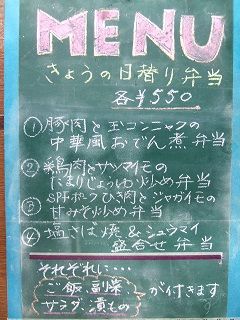 MENU
きょうの日替り弁当
各¥550
① 豚肉と玉コンニャクの
中華風おでん煮弁当
② 鶏肉とサツマイモの
たまりじょうゆ炒め弁当
③ SPFポークひき肉とジャガイモの
甘みそ炒め弁当
④ 塩さば焼&シュウマイ
盛合せ弁当
それぞれに・・・
ご飯、副菜
サラダ、漬もの
が付きます